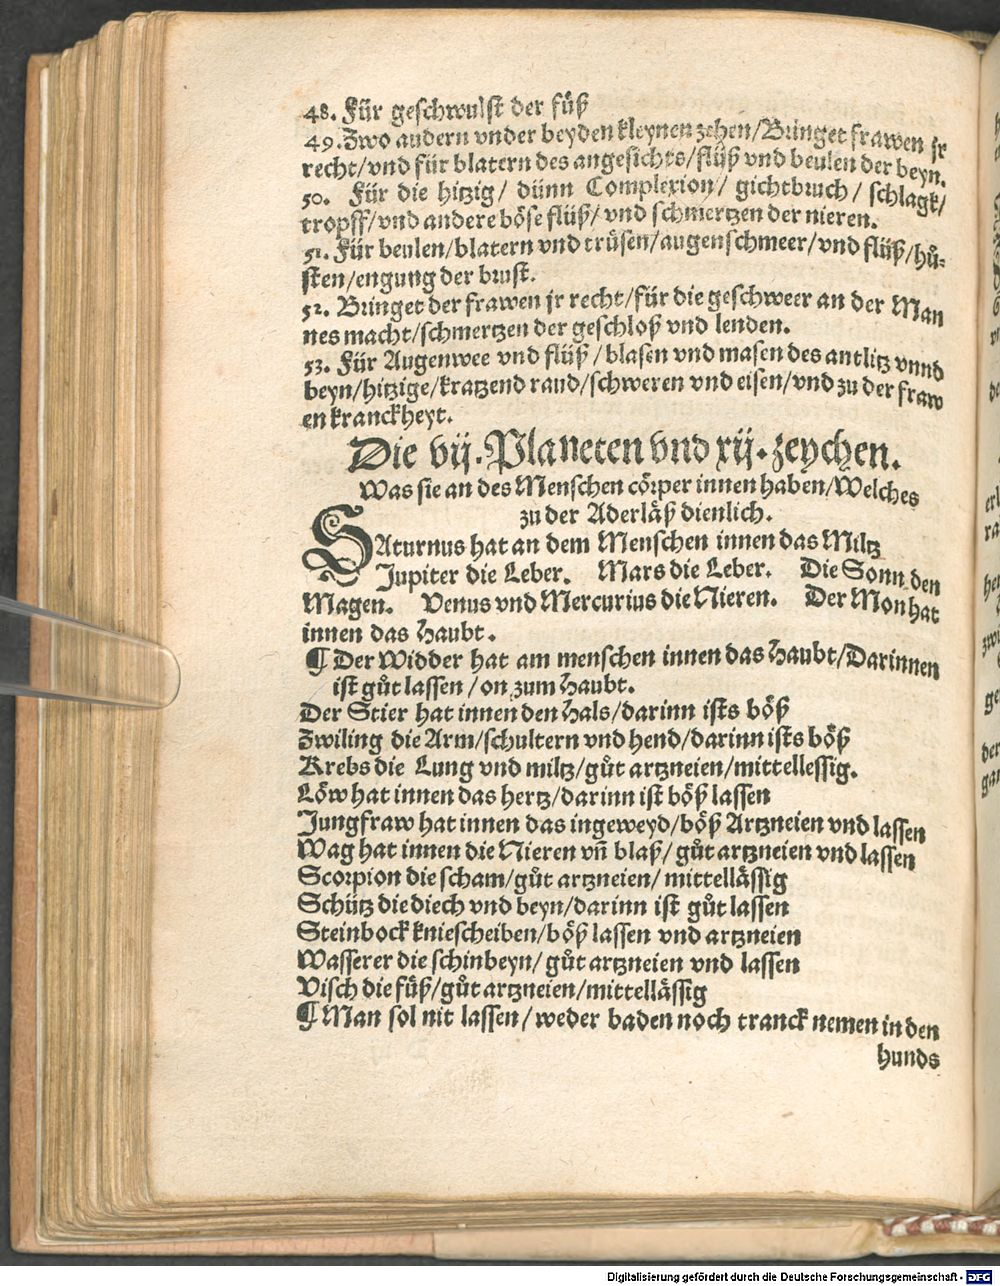 48. Für geschwulst der füß
49. Zwo andern vnder beyden kleynen zehen/Bringet frawen jr
recht/vnd für blatern des angesichts/flüß vnd beulen der beyn.
50. Für die hitzig/ dünn Complexion/ gichtbruch/ schlagk/
tropff/vnd andere böse flüß/ vnd schmertzen der nieren.
51. Für beulen/blatern vnd trüsen/augenschmeer/vnd flüß/hů-
sten/engung der brust.
52. Bringet der frawen jr recht/für die geschweer an der Man
nes macht/schmertzen der geschloß vnd lenden.
53. Für Augenwee vnd flüß/blasen vnd masen des antlitz vnnd
beyn/hitzige/kratzend raud/schweren vnd eisen/vnd zu der fraw
en kranckheyt.
Die vij. Planeten vnd xij. zeychen.
Was sie an des Menschen cörper innen haben/Welches
zu der Aderläß dienlich.
SAturnus hat an dem Menschen innen das Miltz
Jupiter die Leber. Mars die Leber. Die Sonn den
Magen. Venus vnd Mercurius die Nieren. Der Mon hat
innen das Haubt.
¶ Der Widder hat am menschen innen das Haubt/Darinnen
ist gůt lassen/on zum Haubt.
Der Stier hat innen den Hals/darinn ists böß
Zwiling die Arm/schultern vnd hend/darinn ists böß
Krebs die Lung vnd miltz/gůt artzneien/mittellessig.
Löw hat innen das hertz/darinn ist böß lassen
Jungfraw hat innen das ingeweyd/böß Artzneien vnd lassen
Wag hat innen die Nieren vñ blaß/gůt artzneien vnd lassen
Scorpion die scham/gůt artzneien/mittellässig
Schütz die diech vnd beyn/darinn ist gůt lassen
Steinbock kniescheiben/böß lassen vnd artzneien
Wasserer die schinbeyn/gůt artzneien vnd lassen
Visch die füß/gůt artzneien/mittellässig
¶ Man sol nit lassen/weder baden noch tranck nemen in den
hunds
Digitalisierung gefördert durch die Deutsche Forschungsgemeinschaft - DFG